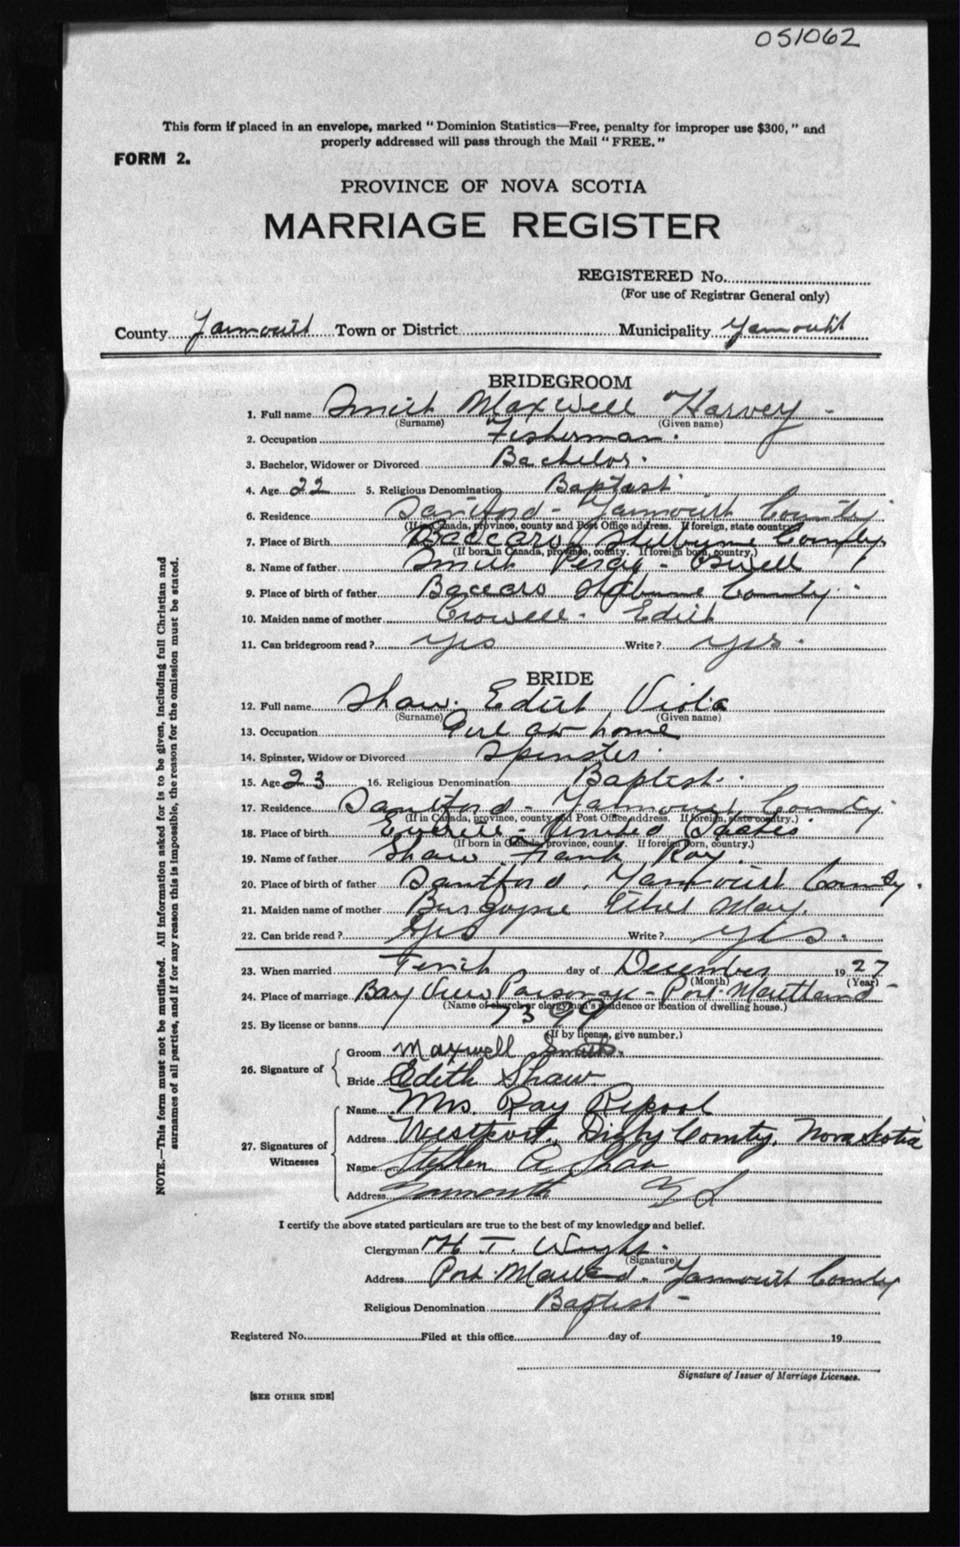 051062
This form if placed in an envelope, marked "Dominion Statistics—Free, penalty for improper use $300," and
properly addressed will pass through the Mail "FREE."
FORM 2.
PROVINCE OF NOVA SCOTIA
MARRIAGE REGISTER
REGISTERED No.
(For use of Registrar General only)
County Yarmouth Town or District Municipality Yarmouth
BRIDEGROOM
1. Full name Smith Maxwell Harvey
(Surname) (Given name)
2. Occupation Fisherman.
3. Bachelor, Widower or Divorced Bachelor.
4. Age 22 5. Religious Denomination Baptist
6. Residence Sandford - Yarmouth County
(If in Canada, province, county and Post Office address. If foreign, state country.)
7. Place of Birth Baccaro Shelburne County
(If born in Canada, province, county. If foreign born, country.)
8. Name of father Smith Percy -
9. Place of birth of father Baccaro Shelburne County
10. Maiden name of mother Crowell - Edith
11. Can bridegroom read? yes Write? yes.
BRIDE
12. Full name Shaw. Edith Viola
(Surname) (Given name)
13. Occupation Girl at home
14. Spinster, Widow or Divorced Spinster.
15. Age 23 16. Religious Denomination Baptist.
17. Residence Sandford - Yarmouth County
(If in Canada, province, county and Post Office address. If foreign, state country.)
18. Place of birth Everett - United States
(If born in Canada, province, county. If foreign born, country.)
19. Name of father Shaw Frank Ray.
20. Place of birth of father Sandford, Yarmouth County.
21. Maiden name of mother Burgoyne Ethel May.
22. Can bride read? Yes Write? yes.
23. When married Tenth day of December 1927
(Month) (Year)
24. Place of marriage Bay View Parsonage - Port Maitland -
(Name of church or clergyman's residence or location of dwelling house.)
25. By license or banns 7399
(If by license, give number.)
26. Signature of
Groom Maxwell Smith.
Bride Edith Shaw.
27. Signatures of Witnesses
Name Mrs. Ray
Address Westport, Digby County, Nova Scotia
Name Stephen A. Shaw
Address Yarmouth N S
I certify the above stated particulars are true to the best of my knowledge and belief.
Clergyman H. T. Wright.
(Signature)
Address Port Maitland. Yarmouth County
Religious Denomination Baptist -
Registered No. Filed at this office day of 19
Signature of Issuer of Marriage Licenses.
[SEE OTHER SIDE]
NOTE.—This form must not be mutilated. All information asked for is to be given, including full Christian and
surnames of all parties, and if for any reason this is impossible, the reason for the omission must be stated.